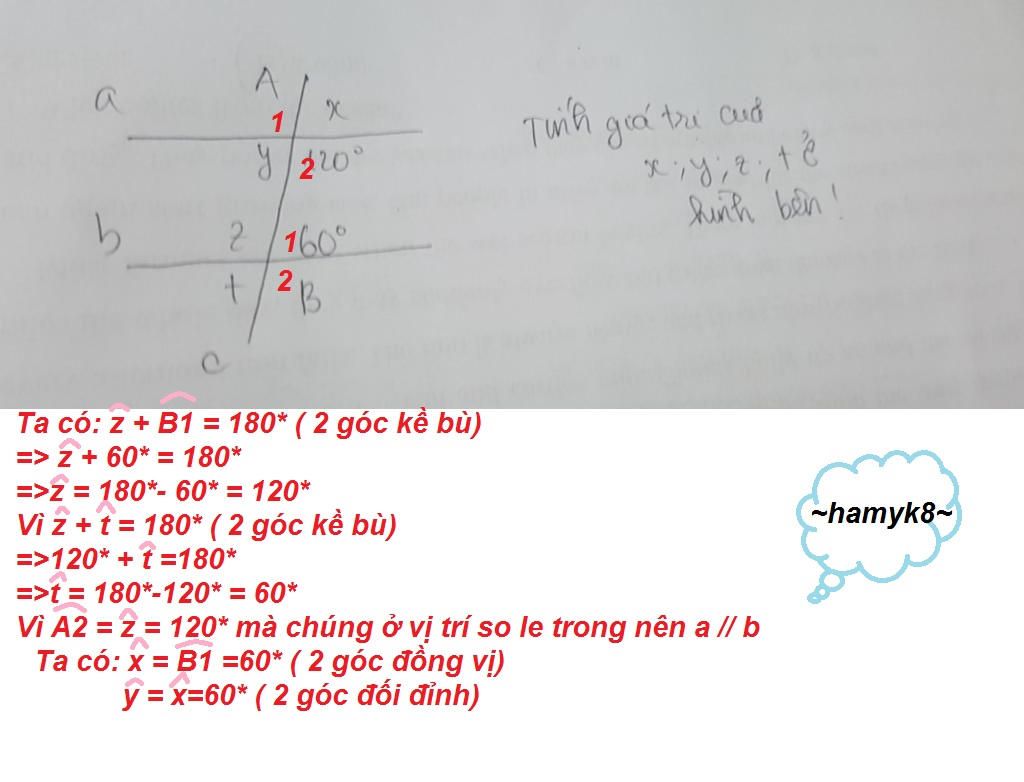 A
a
x
1
y
2
120°
Tính giá trị của
x; y; z; t ở
hình bên!
b
z
1
60°
t
2
B
c
Ta có: z + B1 = 180* ( 2 góc kề bù)
=> z + 60* = 180*
=>z = 180*- 60* = 120*
Vì z + t = 180* ( 2 góc kề bù)
=>120* + t =180*
=>t = 180*-120* = 60*
Vì A2 = z = 120* mà chúng ở vị trí so le trong nên a // b
Ta có: x = B1 =60* ( 2 góc đồng vị)
y = x=60* ( 2 góc đối đỉnh)
~hamyk8~